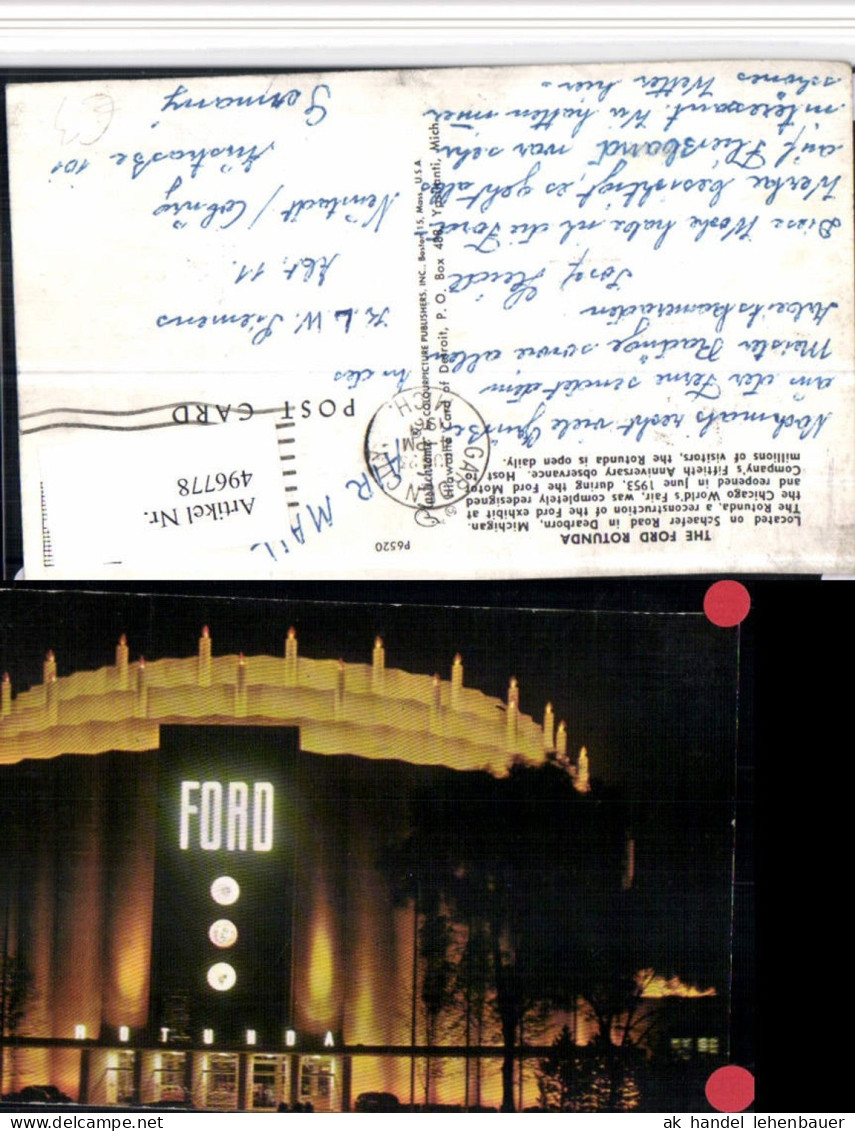 THE FORD ROTUNDA
Located on Schaefer Road in Dearborn, Michigan.
The Rotunda, a reconstruction of the Ford exhibit at
the Chicago World's Fair, was completely redesigned
and reopened in June 1953, during the Ford Motor
Company's Fiftieth Anniversary observance. Host to
millions of visitors, the Rotunda is open daily.
Nochmals recht viele Grüße
aus der Ferne sendet dem
Meister sowie allen
Arbeitskameraden
Josef
Diese Woche habe ich die Ford
Werke besichtigt, es geht alles
auf Fliessband war sehr
interessant. Wir hatten immer
schönes Wetter hier.
P6520
POST CARD
AIR MAIL
COLOURPICTURE PUBLISHERS, INC., Boston 15, Mass., U.S.A.
Hiawatha Card of Detroit, P. O. Box 488, Ypsilanti, Mich.
MICH.
PM
An das
K L W. Siemens
Abt. 11.
Neustadt / Coburg
101
Germany
Artikel Nr.
496778
FORD
ROTUNDA
ak handel lehenbauer